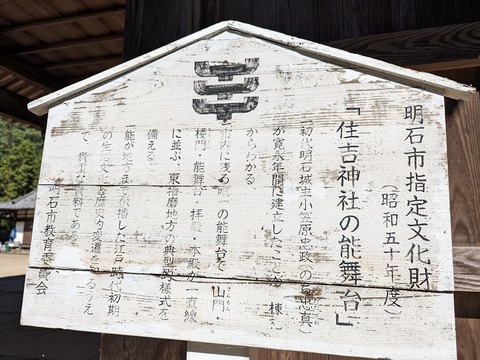 明石市指定文化財
(昭和五十年度)
「住吉神社の能舞台」
初代明石城主小笠原忠政(のち忠真)
が寛永年間に建立したことが 棟
からわかる。
市内に残る唯一の能舞台で、山門
さんもん
楼門・能舞台・拝殿・本殿が一直線
に並ぶ、東播磨地方の典型的様式を
備える。
能が地方まで伝播した江戸時代初期
の生 文 と歴史的変遷を知るうえ
で、貴重な資料である。
明石市教育委員会